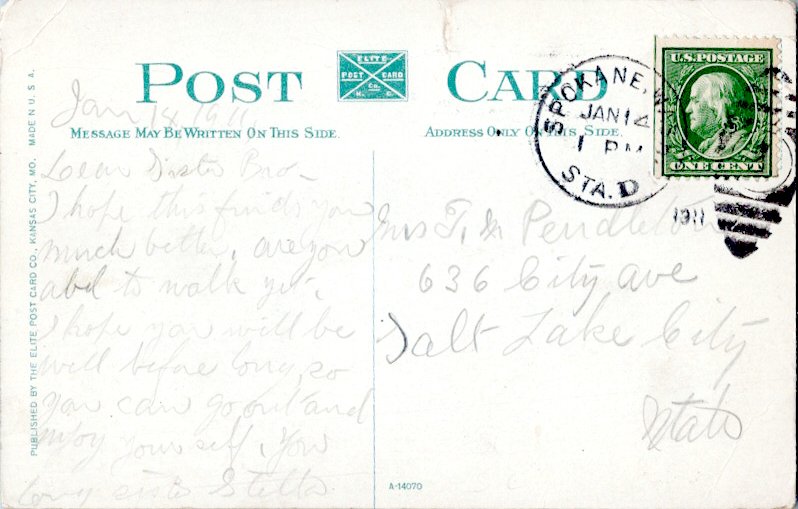 POST CARD
ELITE
POST CARD
Co.
MESSAGE MAY BE WRITTEN ON THIS SIDE.
ADDRESS ONLY ON THIS SIDE.
U.S. POSTAGE
ONE CENT
SPOKANE, W
JAN 14
1 PM
STA. D
1911
PUBLISHED BY THE ELITE POST CARD CO., KANSAS CITY, MO. MADE IN U. S. A.
Jan 14 1911
Dear Sister Bro-
I hope this finds you
much better, are you
abl to walk yet,
I hope you will be
well before long, so
you can go out and
enjoy yourself, your
loving sister Stella
Mrs T. M Pendleton
636 City ave
Salt Lake City
Utah
A-14070